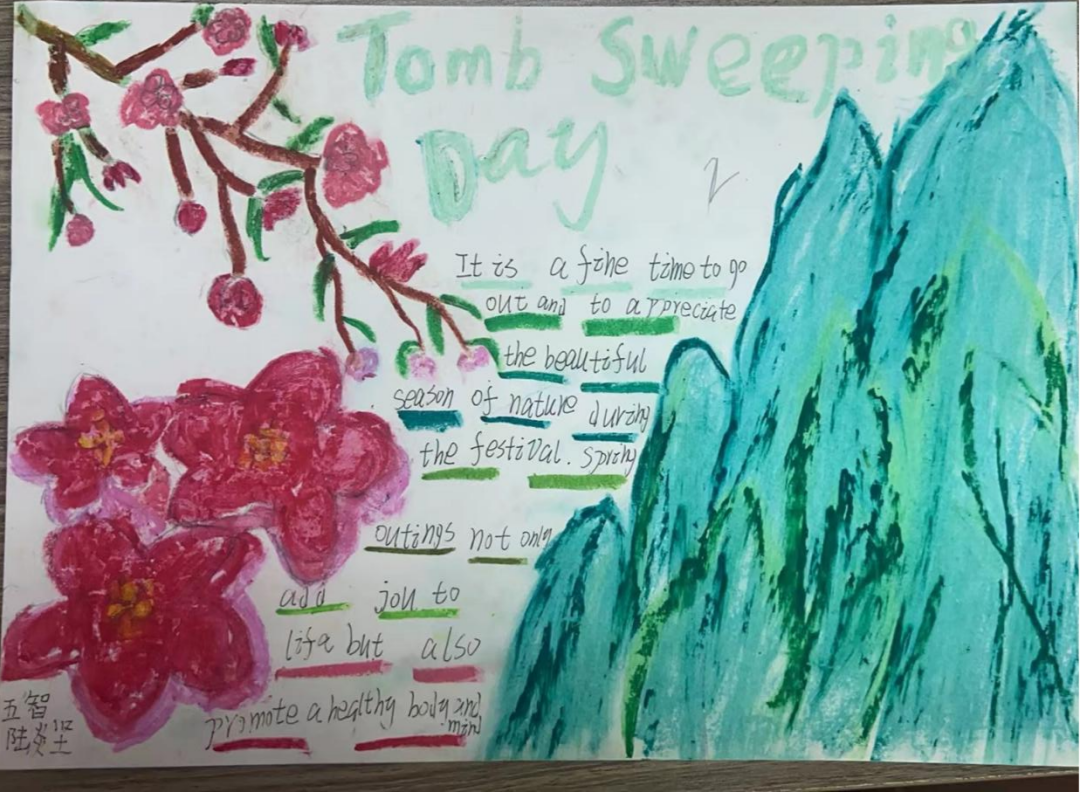 Tomb Sweeping
Day
It is a fine time to go
out and to appreciate
the beautiful
season of nature during
the festival. Spring
outings not only
add jou to
lifa but also
promote a healthy body and
mind
五智
陆